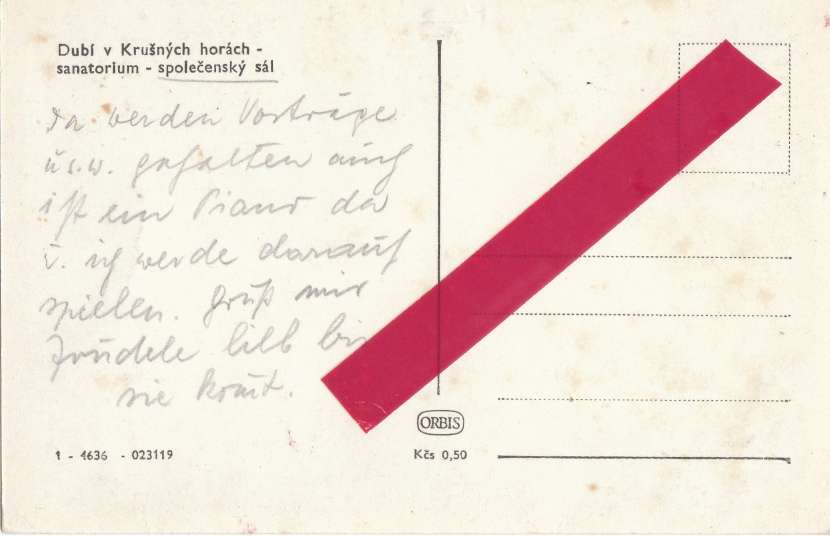 Dubí v Krušných horách -
sanatorium - společenský sál
da werden Vorträge
u.s.w. gehalten auch
ist ein Piano da
u. ich werde darauf
spielen. Grüß mir
lieb bis
sie kommt.
ORBIS
1 - 4636 - 023119
Kčs 0,50